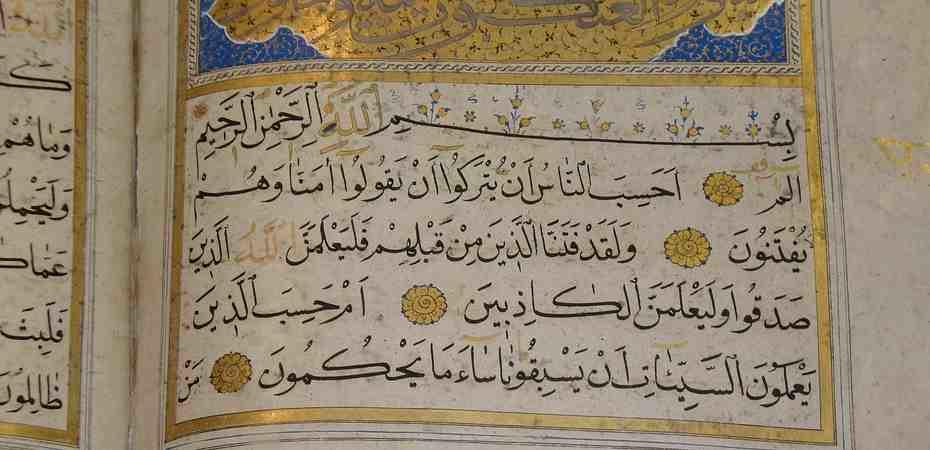 سورة العنكبوت
بِسْمِ اللَّهِ الرَّحْمٰنِ الرَّحِيمِ
الم اَحَسِبَ النَّاسُ اَنْ يُتْرَكُوا اَنْ يَقُولُوا اٰمَنَّا وَهُمْ
يُفْتَنُونَ وَلَقَدْ فَتَنَّا الَّذِينَ مِنْ قَبْلِهِمْ فَلَيَعْلَمَنَّ اللَّهُ الَّذِينَ
صَدَقُوا وَلَيَعْلَمَنَّ الْكَاذِبِينَ اَمْ حَسِبَ الَّذِينَ
يَعْمَلُونَ السَّيِّئَاتِ اَنْ يَسْبِقُونَا سَاءَ مَا يَحْكُمُونَ مَنْ
وَمَا هُمْ
عَمَّا
ظَالِمُونَ